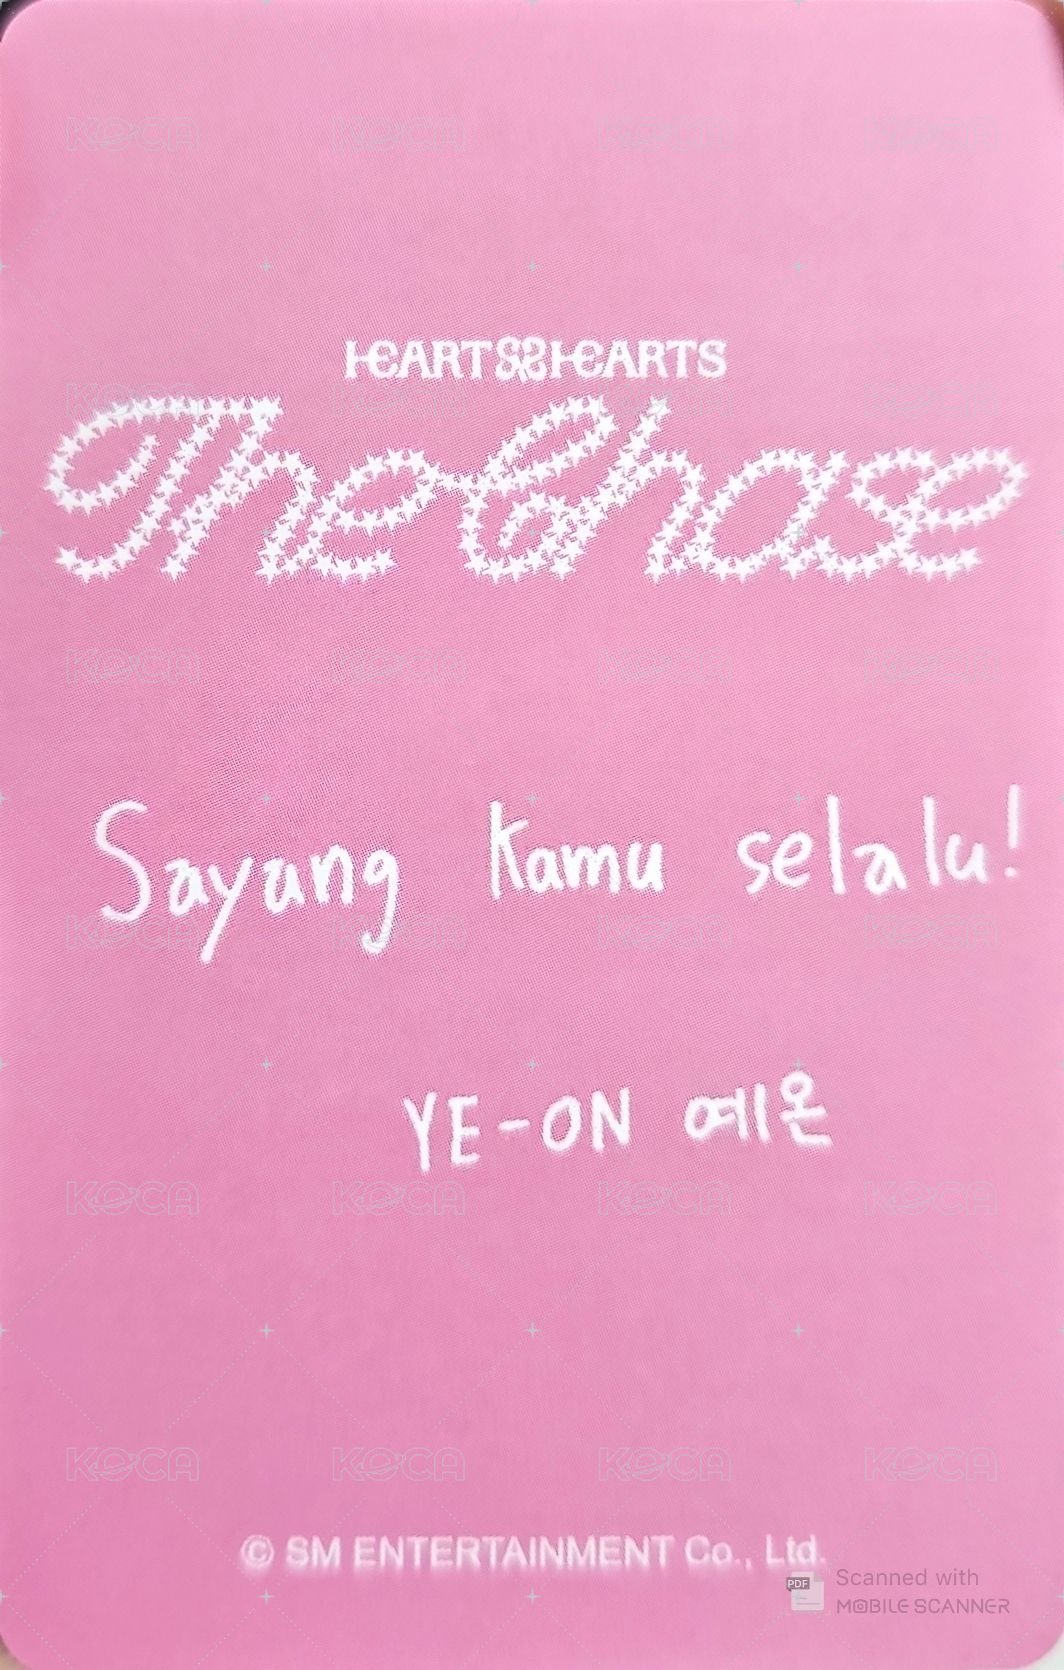 HEARTS2HEARTS
The Chase
Sayang kamu selalu!
YE-ON 예온
© SM ENTERTAINMENT Co., Ltd.
PDF Scanned with
MOBILE SCANNER
KOCA KOCA KOCA KOCA
KOCA KOCA KOCA KOCA
KOCA KOCA KOCA KOCA
KOCA KOCA KOCA KOCA
KOCA KOCA KOCA KOCA
KOCA KOCA KOCA KOCA